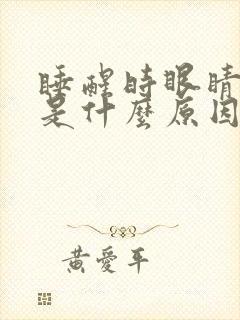 睡醒時眼睛
是什麼原因
黃愛平